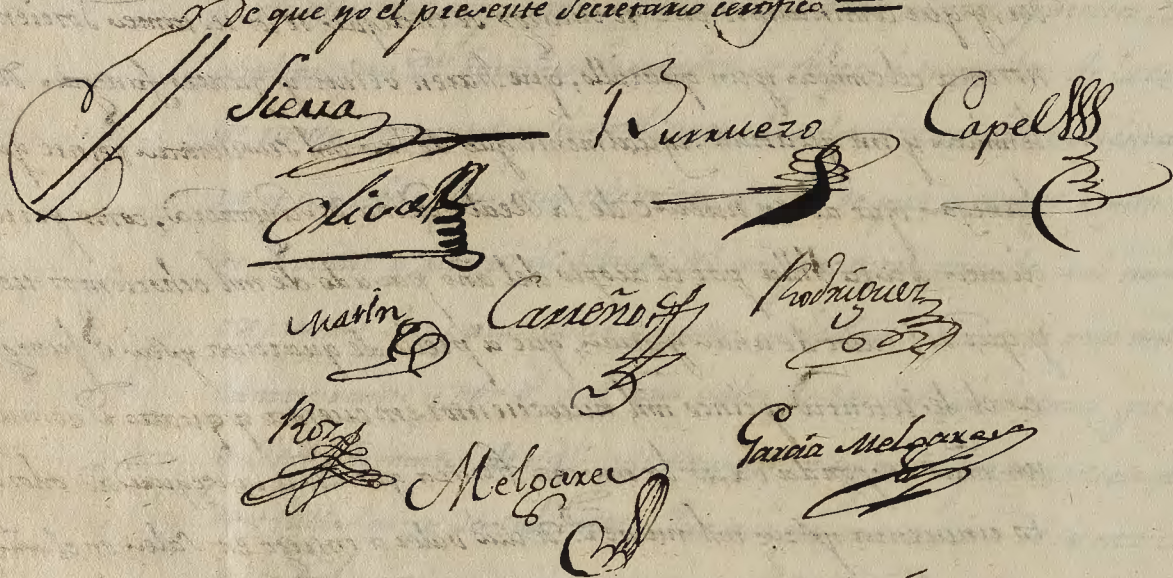 de que yo el presente Secretario certifico
Sierra Burruezo Capel
Oliva
Marin Carreño Rodriguez
Roz
Melgarez Garcia Melgarez